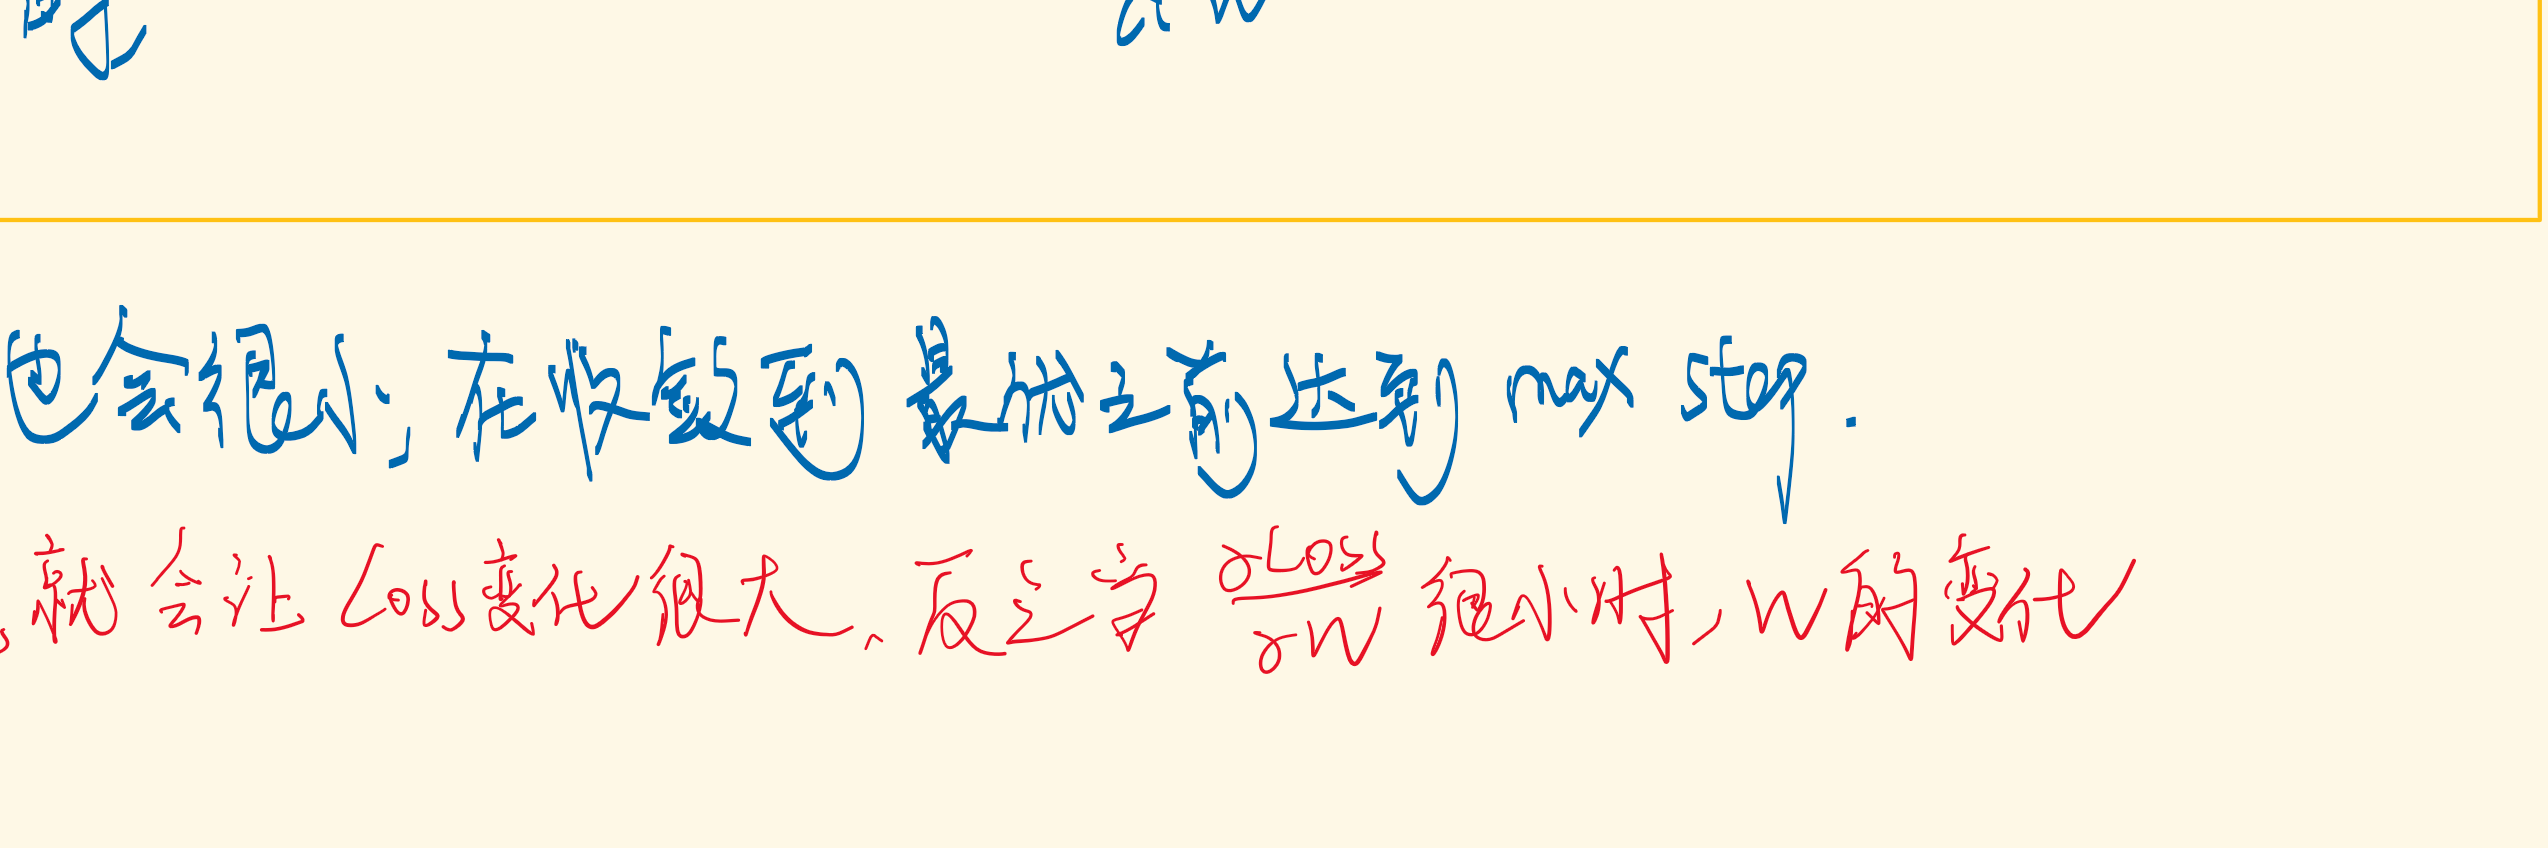 也会很小; 在收敛到最优之前达到 max step.
就会让 Loss 变化很大, 反之当 ∂Loss/∂W 很小时, W的变化